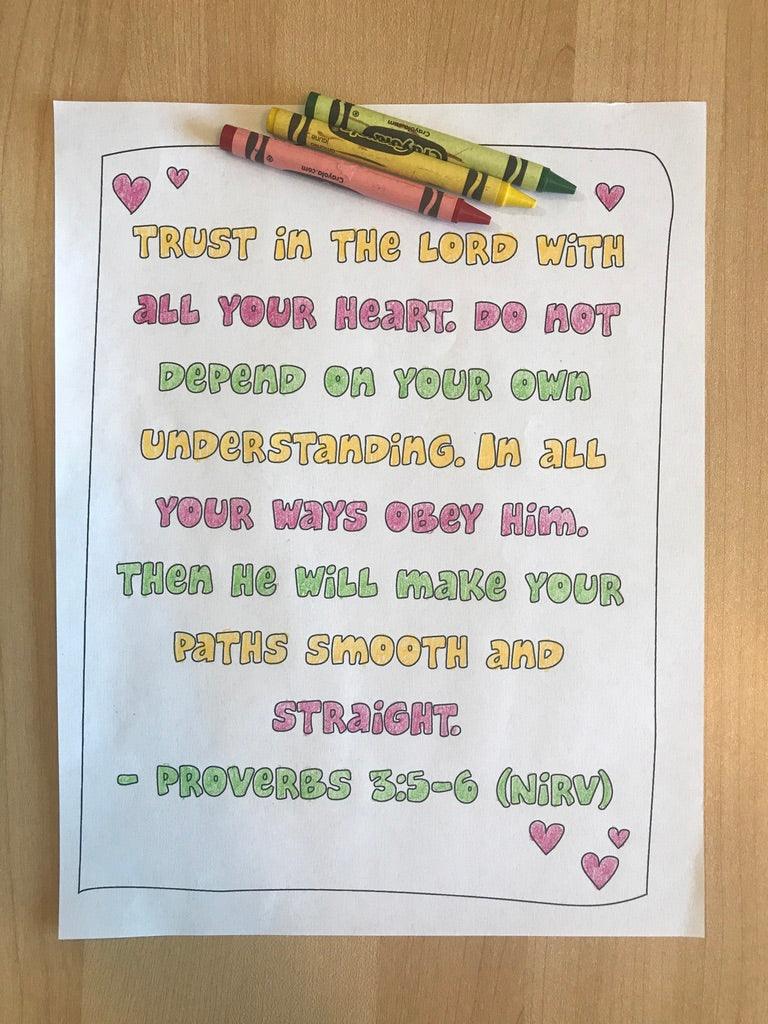 Crayola.com
Crayola
Crayola.com
TRUST in THE LORD WiTH
all YOUR HeaRT. DO noT
DePenD on YOUR Own
UnDeRSTanDinG. In all
YOUR Ways OBey Him.
THen He WiLL make YOUR
PaTHS SmOOTH anD
STRaiGHT.
- PROVeRBS 3:5-6 (NiRV)